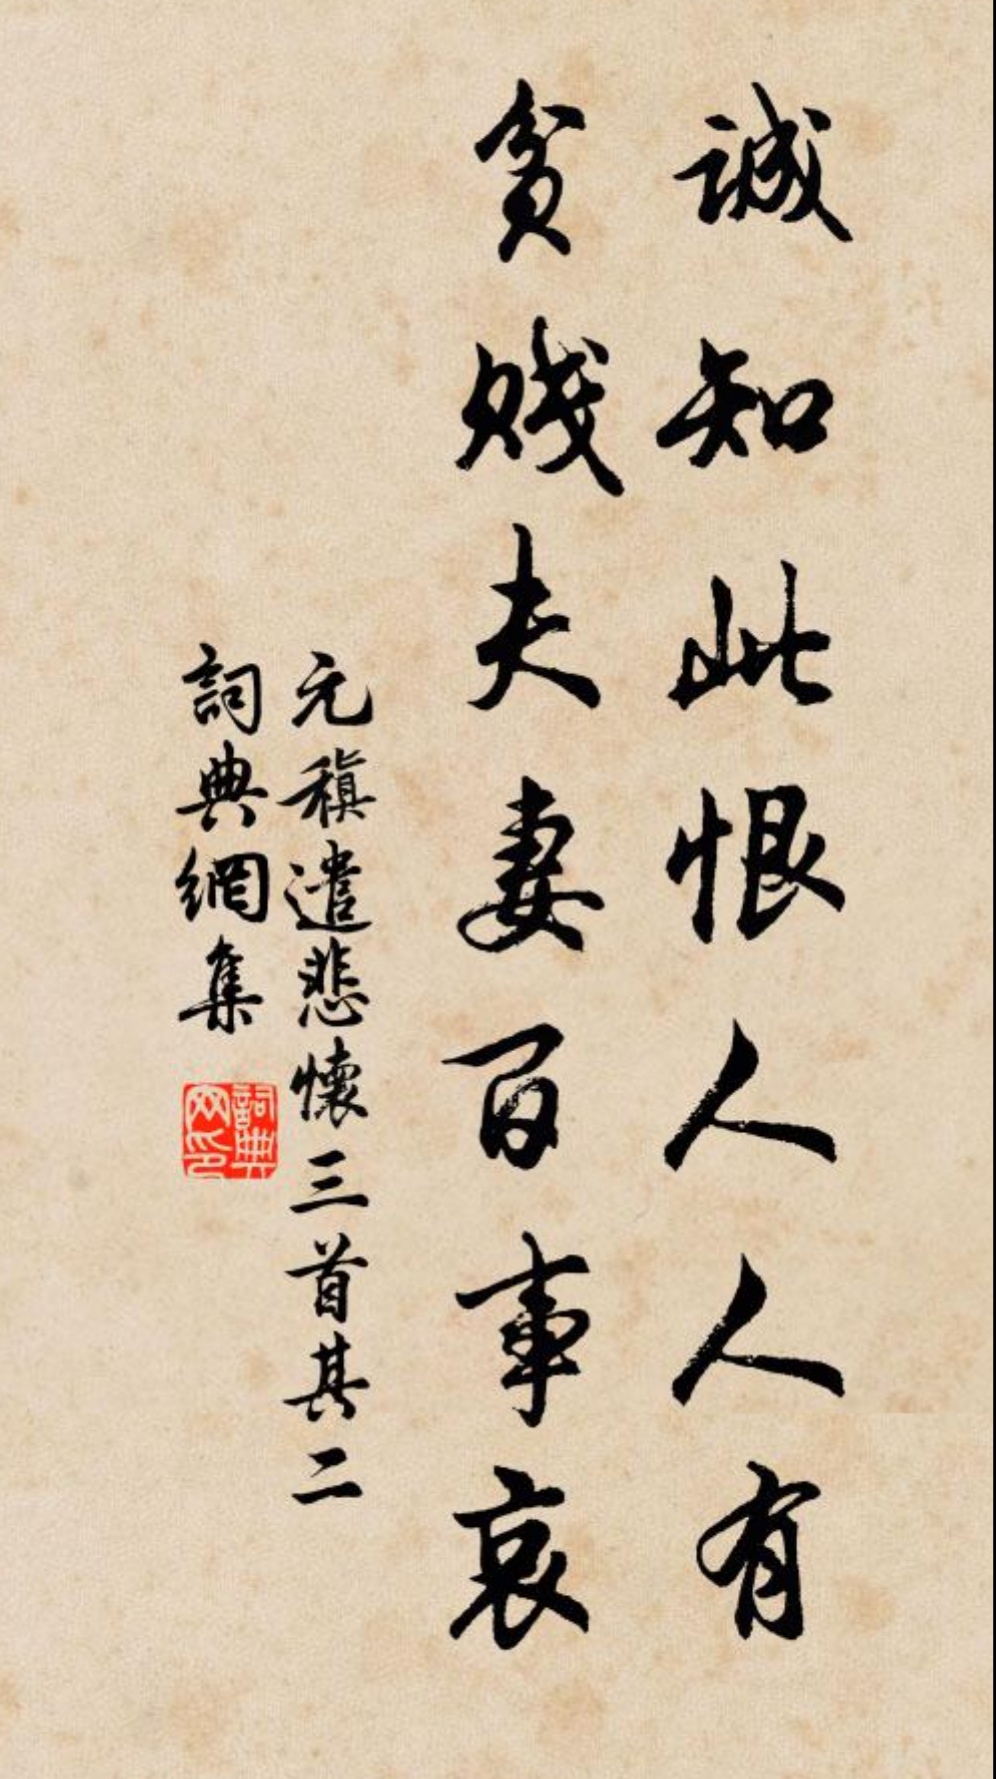 誠知此恨人人有
貧賤夫妻百事哀
元稹遣悲懷三首其二
詞典網集
詞典
网印